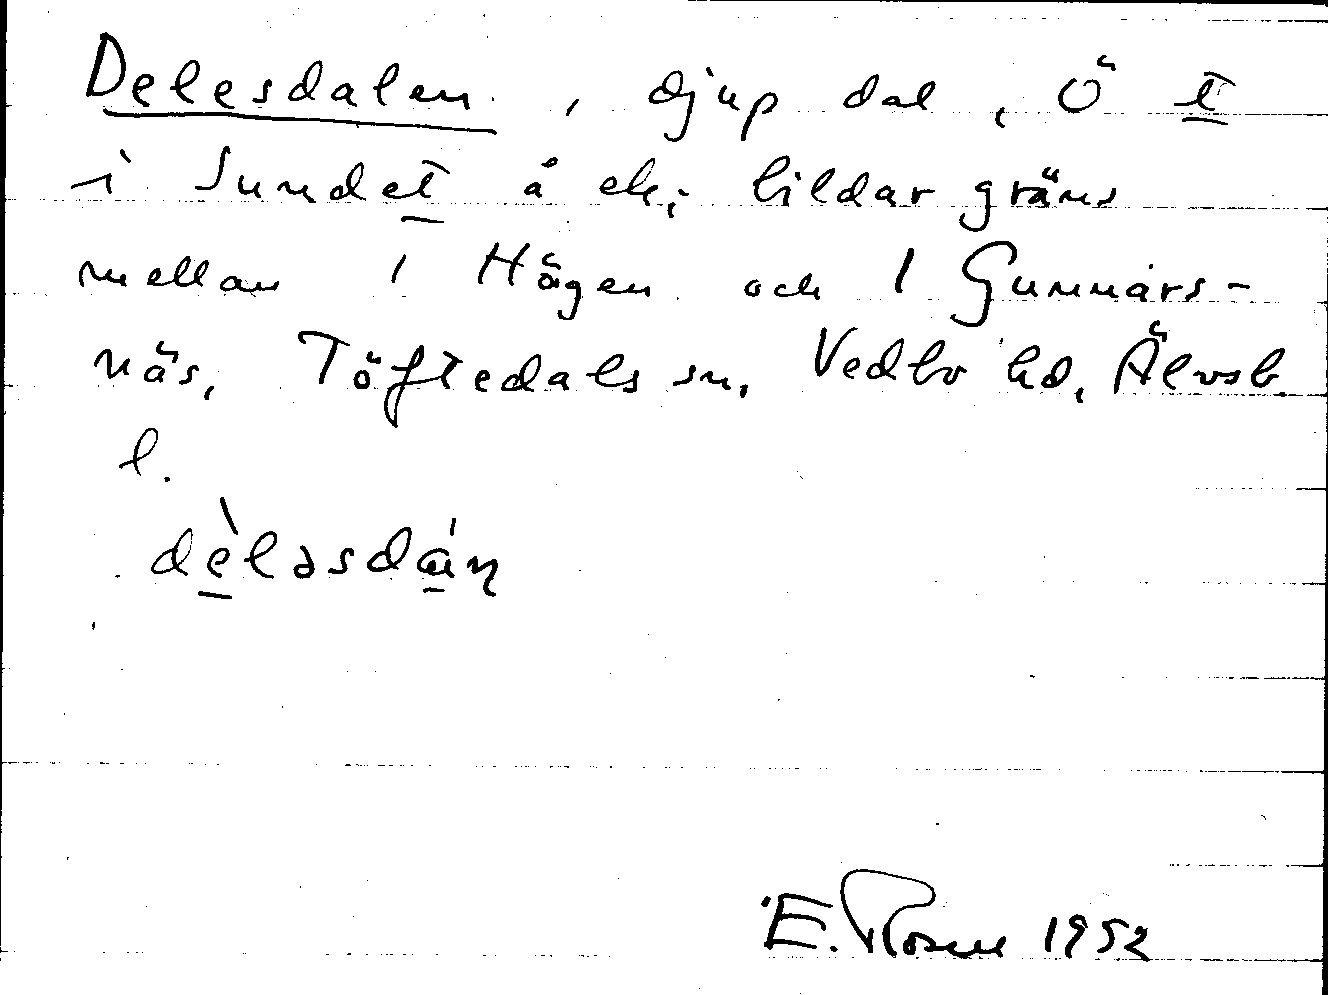 Delesdalen, djup dal, Ö t
i Sundet å ek; bildar gräns
mellan 1 Högen och 1 Gunnars-
näs, Töftedals sn, Vedbo hd, Älvsb.
l.
dèləsdán
E. Rosell 1952